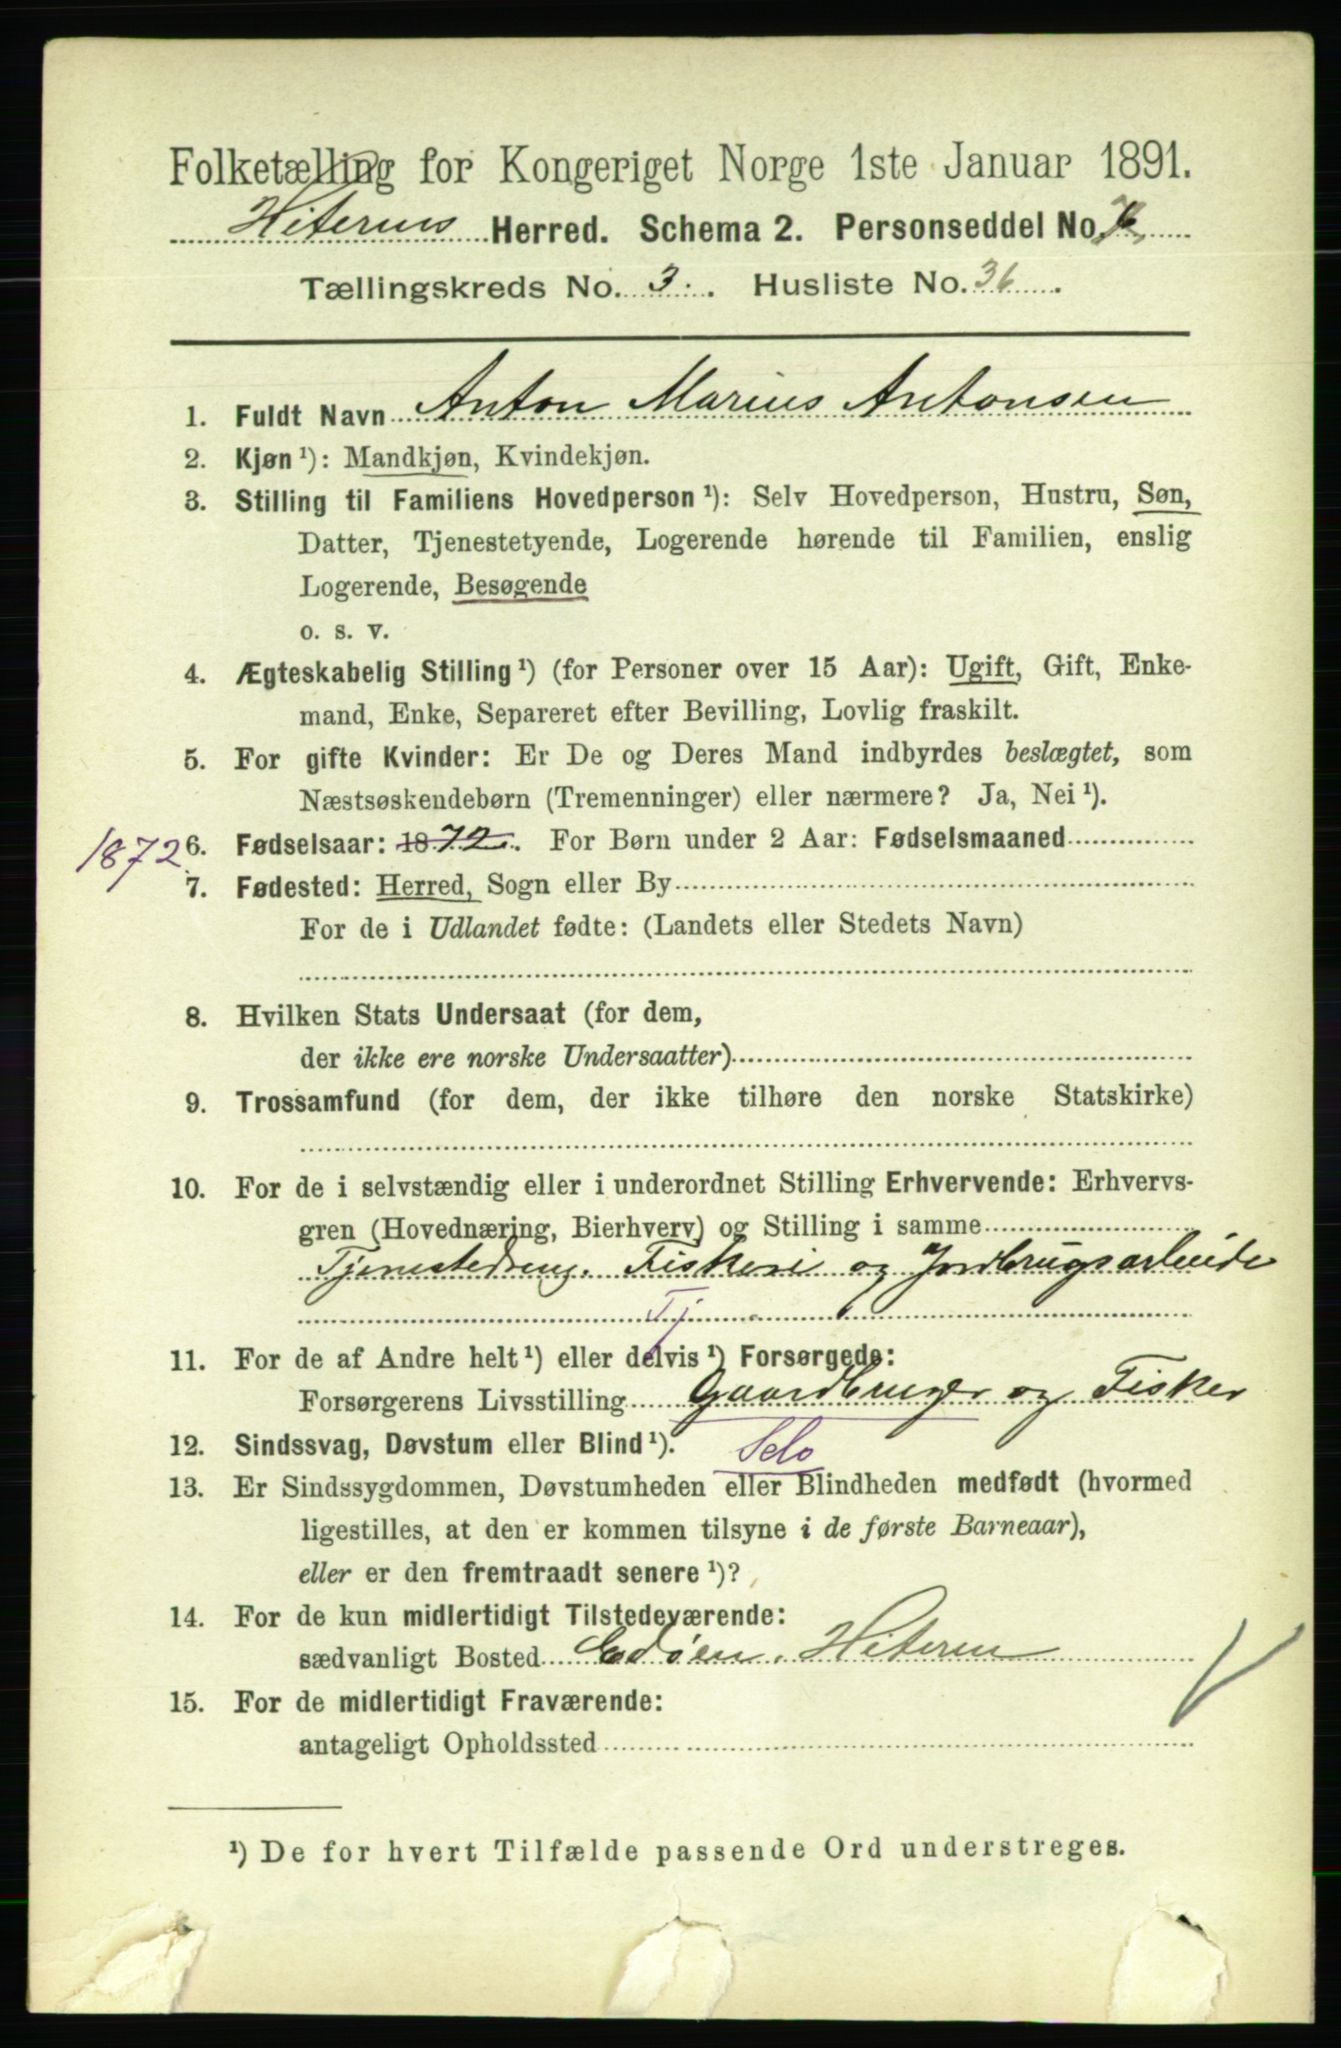 Folketælling for Kongeriget Norge 1ste Januar 1891.
Hiterens Herred. Schema 2. Personseddel No.
Tællingskreds No. 3. Husliste No. 36.
1. Fuldt Navn Anton Marius Antonsen
2. Kjøn ¹): Mandkjøn, Kvindekjøn.
3. Stilling til Familiens Hovedperson ¹): Selv Hovedperson, Hustru, Søn,
Datter, Tjenestetyende, Logerende hørende til Familien, enslig
Logerende, Besøgende
o. s. v.
4. Ægteskabelig Stilling ¹) (for Personer over 15 Aar): Ugift, Gift, Enke-
mand, Enke, Separeret efter Bevilling, Lovlig fraskilt.
5. For gifte Kvinder: Er De og Deres Mand indbyrdes beslægtet, som
Næstsøskendebørn (Tremenninger) eller nærmere? Ja, Nei ¹).
1872
6. Fødselsaar: 1872. For Børn under 2 Aar: Fødselsmaaned
7. Fødested: Herred, Sogn eller By
For de i Udlandet fødte: (Landets eller Stedets Navn)
8. Hvilken Stats Undersaat (for dem,
der ikke ere norske Undersaatter)
9. Trossamfund (for dem, der ikke tilhøre den norske Statskirke)
10. For de i selvstændig eller i underordnet Stilling Erhvervende: Erhvervs-
gren (Hovednæring, Bierhverv) og Stilling i samme
Tjenestedreng. Fiskeri og Jordbrugsarbeide
Tj
11. For de af Andre helt ¹) eller delvis ¹) Forsørgede:
Forsørgerens Livsstilling Gaardbruger og Fisker
12. Sindssvag, Døvstum eller Blind ¹). Selv
13. Er Sindssygdommen, Døvstumheden eller Blindheden medfødt (hvormed
ligestilles, at den er kommen tilsyne i de første Barneaar),
eller er den fremtraadt senere ¹)?
14. For de kun midlertidigt Tilstedeværende:
sædvanligt Bosted Edøen. Hiteren
15. For de midlertidigt Fraværende:
antageligt Opholdssted
¹) De for hvert Tilfælde passende Ord understreges.